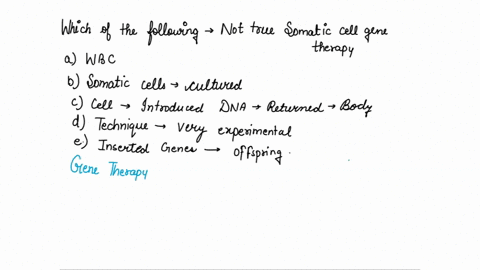 Which of the following → Not true Somatic cell gene
therapy
a) WBC
b) Somatic cells → cultured
c) Cell → Introduced DNA → Returned → Body
d) Technique → Very experimental
e) Inserted Genes → Offspring.
Gene Therapy